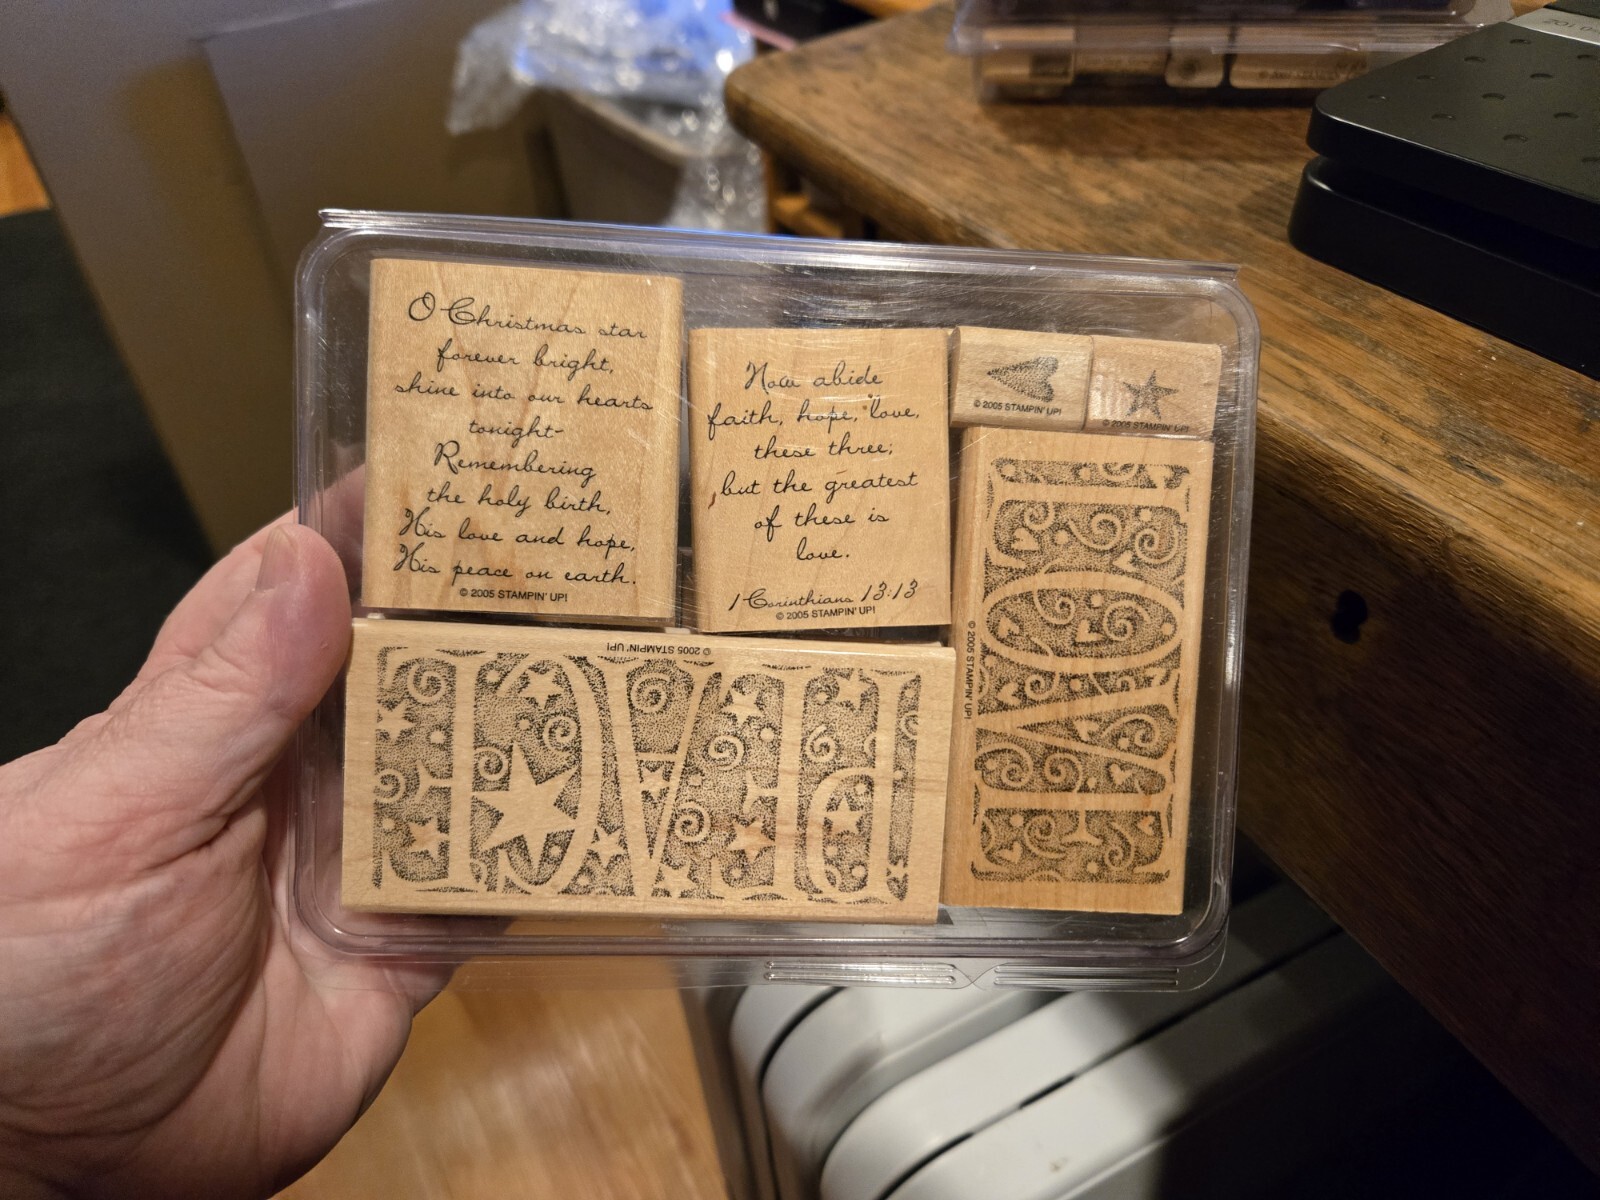 O Christmas star
forever bright,
shine into our hearts
tonight-
Remembering
the holy birth,
His love and hope,
His peace on earth.
© 2005 STAMPIN' UP!
Now abide
faith, hope, love,
these three;
but the greatest
of these is
love.
1 Corinthians 13:13
© 2005 STAMPIN' UP!
© 2005 STAMPIN' UP!
© 2005 STAMPIN' UP!
© 2005 STAMPIN' UP!
PEACE
© 2005 STAMPIN' UP!
LOVE